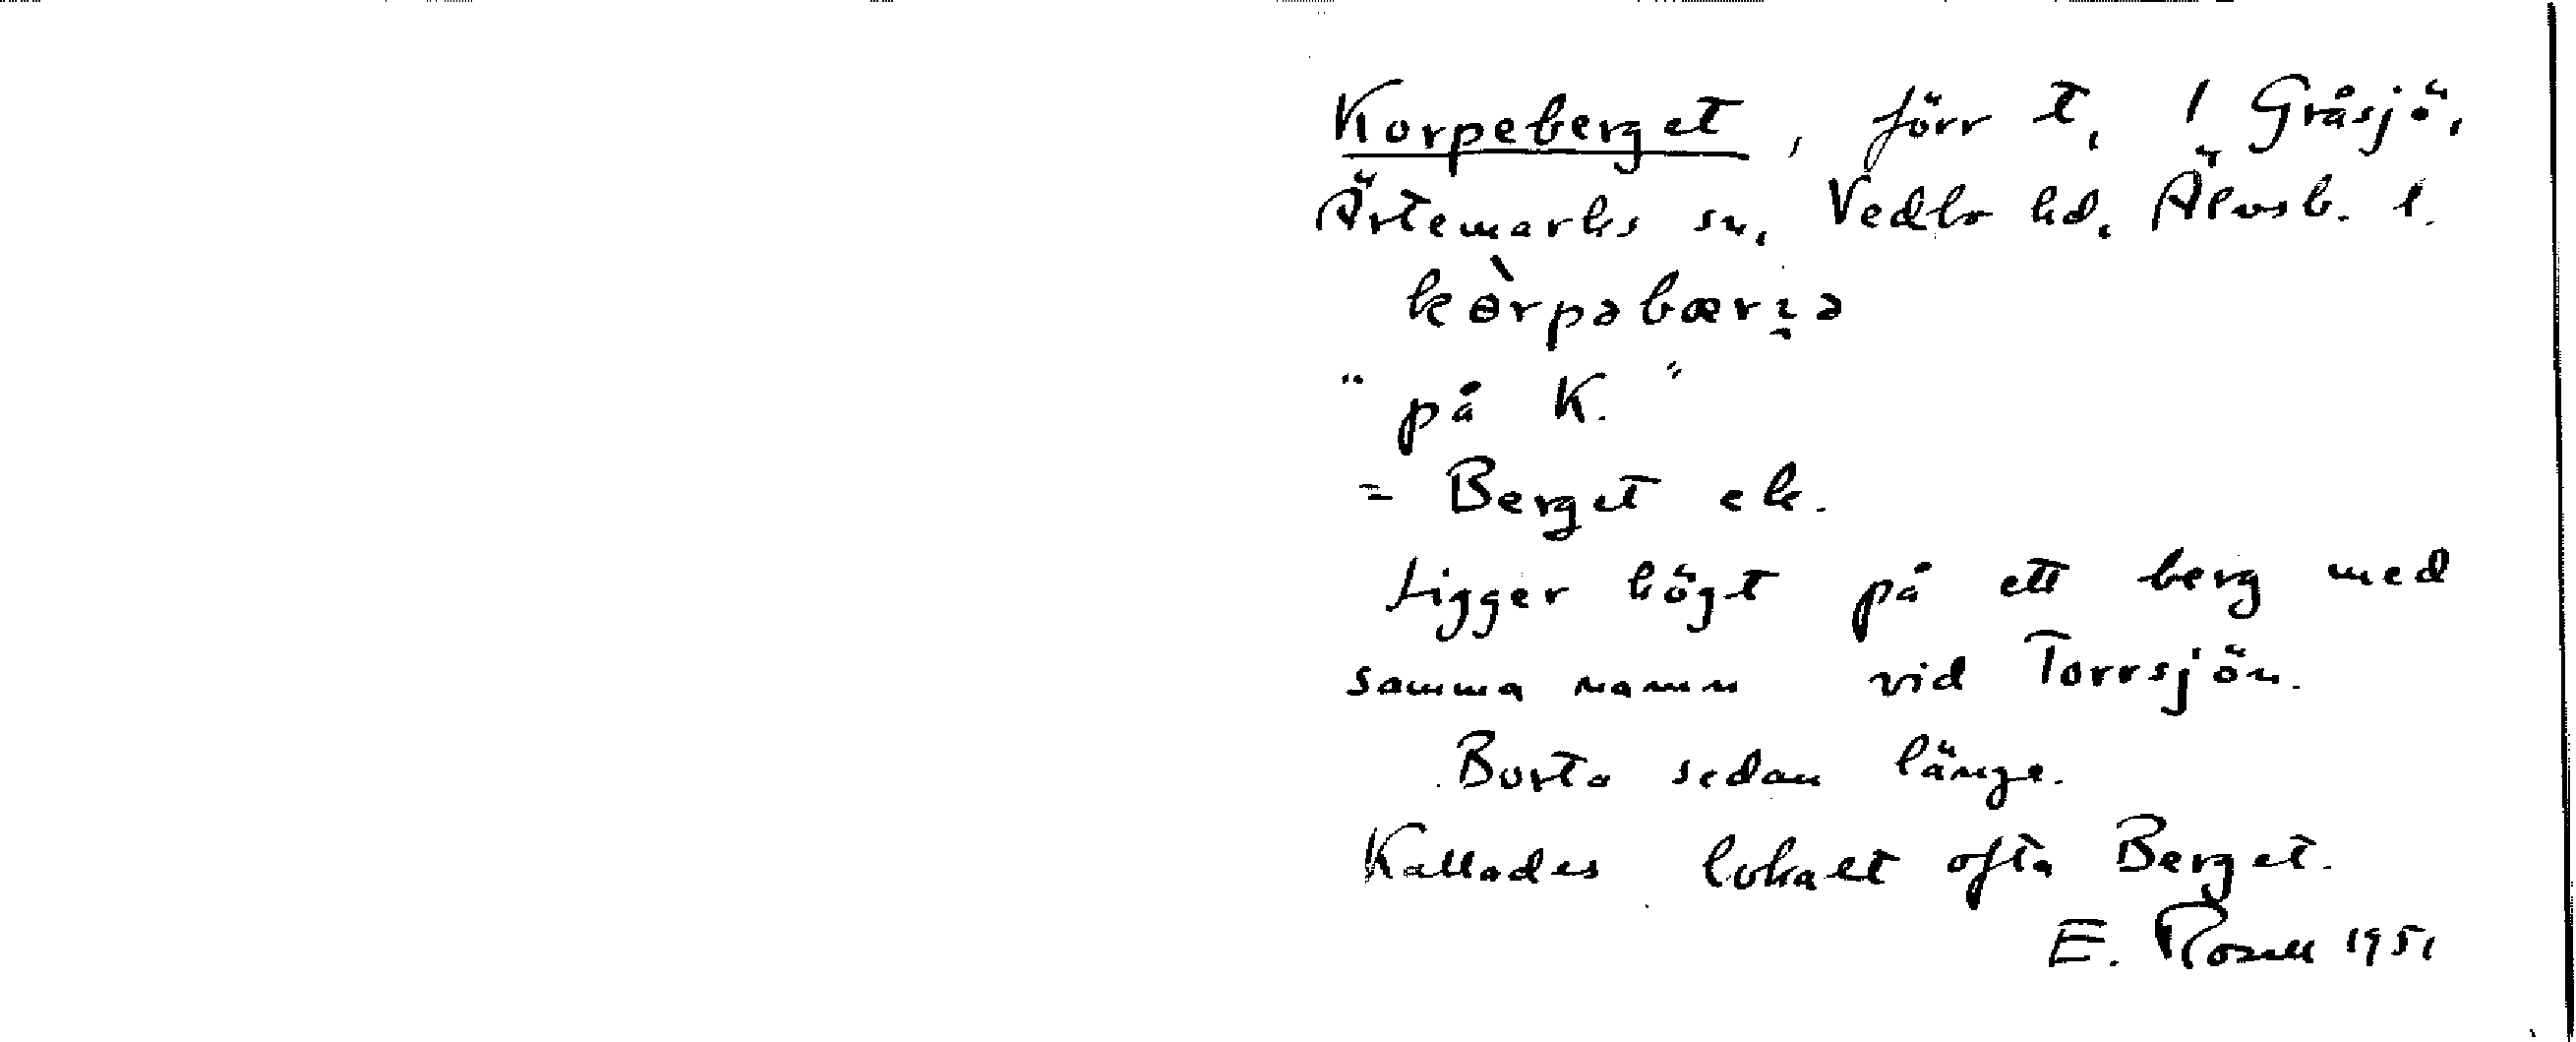 Korpeberget, förr t. / Gråsjö,
Ärtemarks sn, Vedbo hd, Älvsb. l.
"på K."
= Berget ek.
Ligger högt på ett berg med
samma namn vid Torrsjön.
Borta sedan länge.
Kallades lokalt ofta Berget.
E. Rosell 1951